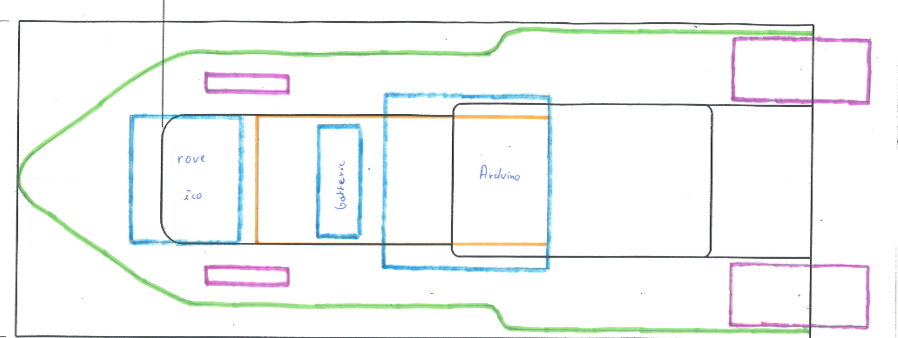 rove
ico
Batterie
Arduino